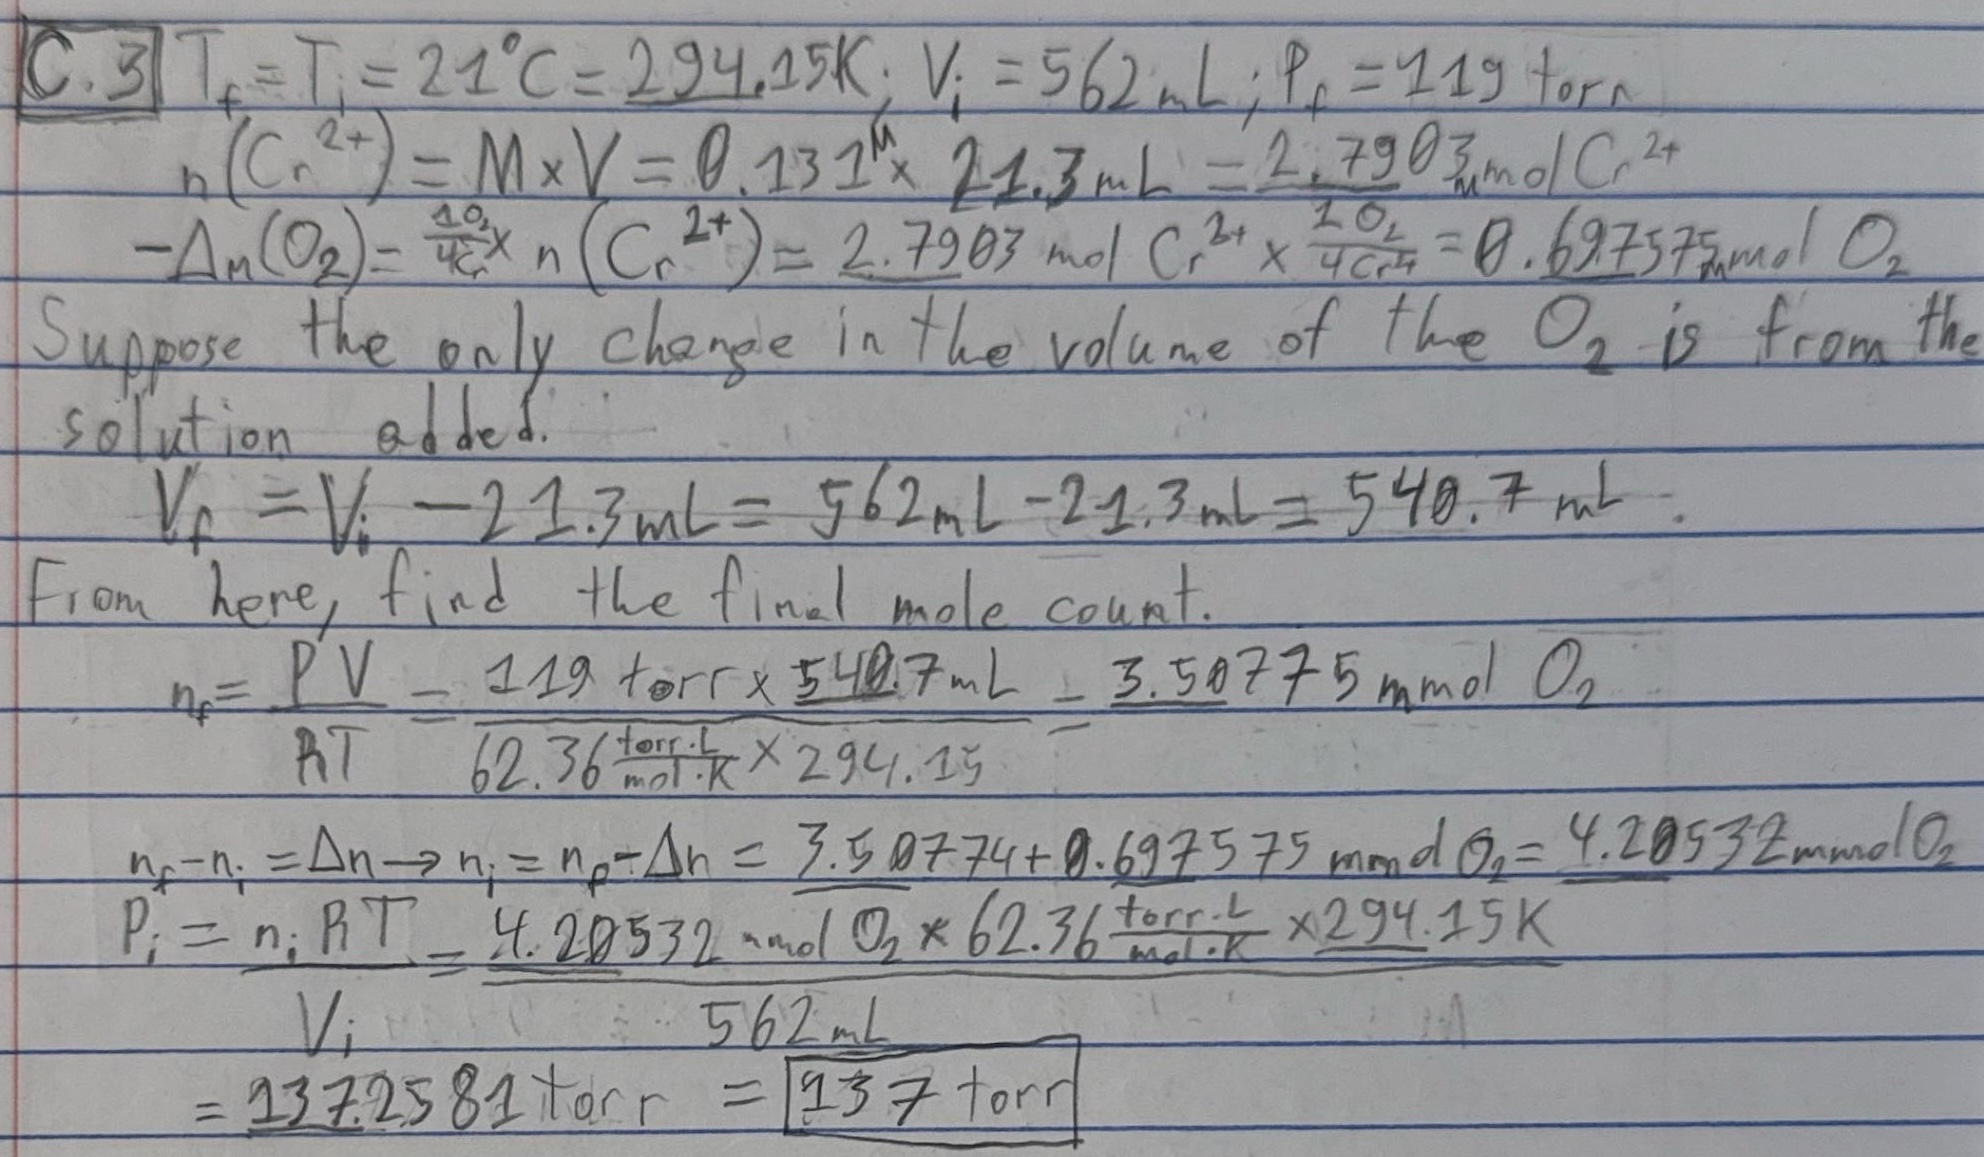 C.3 T_f = T_i = 21°C = 294.15K; V_i = 562 mL; P_f = 119 torr
n(Cr^2+) = M × V = 0.131 M × 21.3 mL = 2.7903 mmol Cr^2+
-Δn(O_2) = 1O_2/4Cr × n(Cr^2+) = 2.7903 mol Cr^2+ × 1O_2/4Cr^2+ = 0.697575 mmol O_2
Suppose the only change in the volume of the O_2 is from the
solution added.
V_f = V_i - 21.3mL = 562mL - 21.3mL = 540.7 mL.
From here, find the final mole count.
n_f = PV/RT = 119 torr × 540.7mL / 62.36 torr·L/mol·K × 294.15 = 3.50775 mmol O_2
n_f - n_i = Δn → n_i = n_f - Δn = 3.50774 + 0.697575 mmol O_2 = 4.20532 mmol O_2
P_i = n_i RT/V_i = 4.20532 mmol O_2 × 62.36 torr·L/mol·K × 294.15K / 562mL
= 137.2581 torr = 137 torr